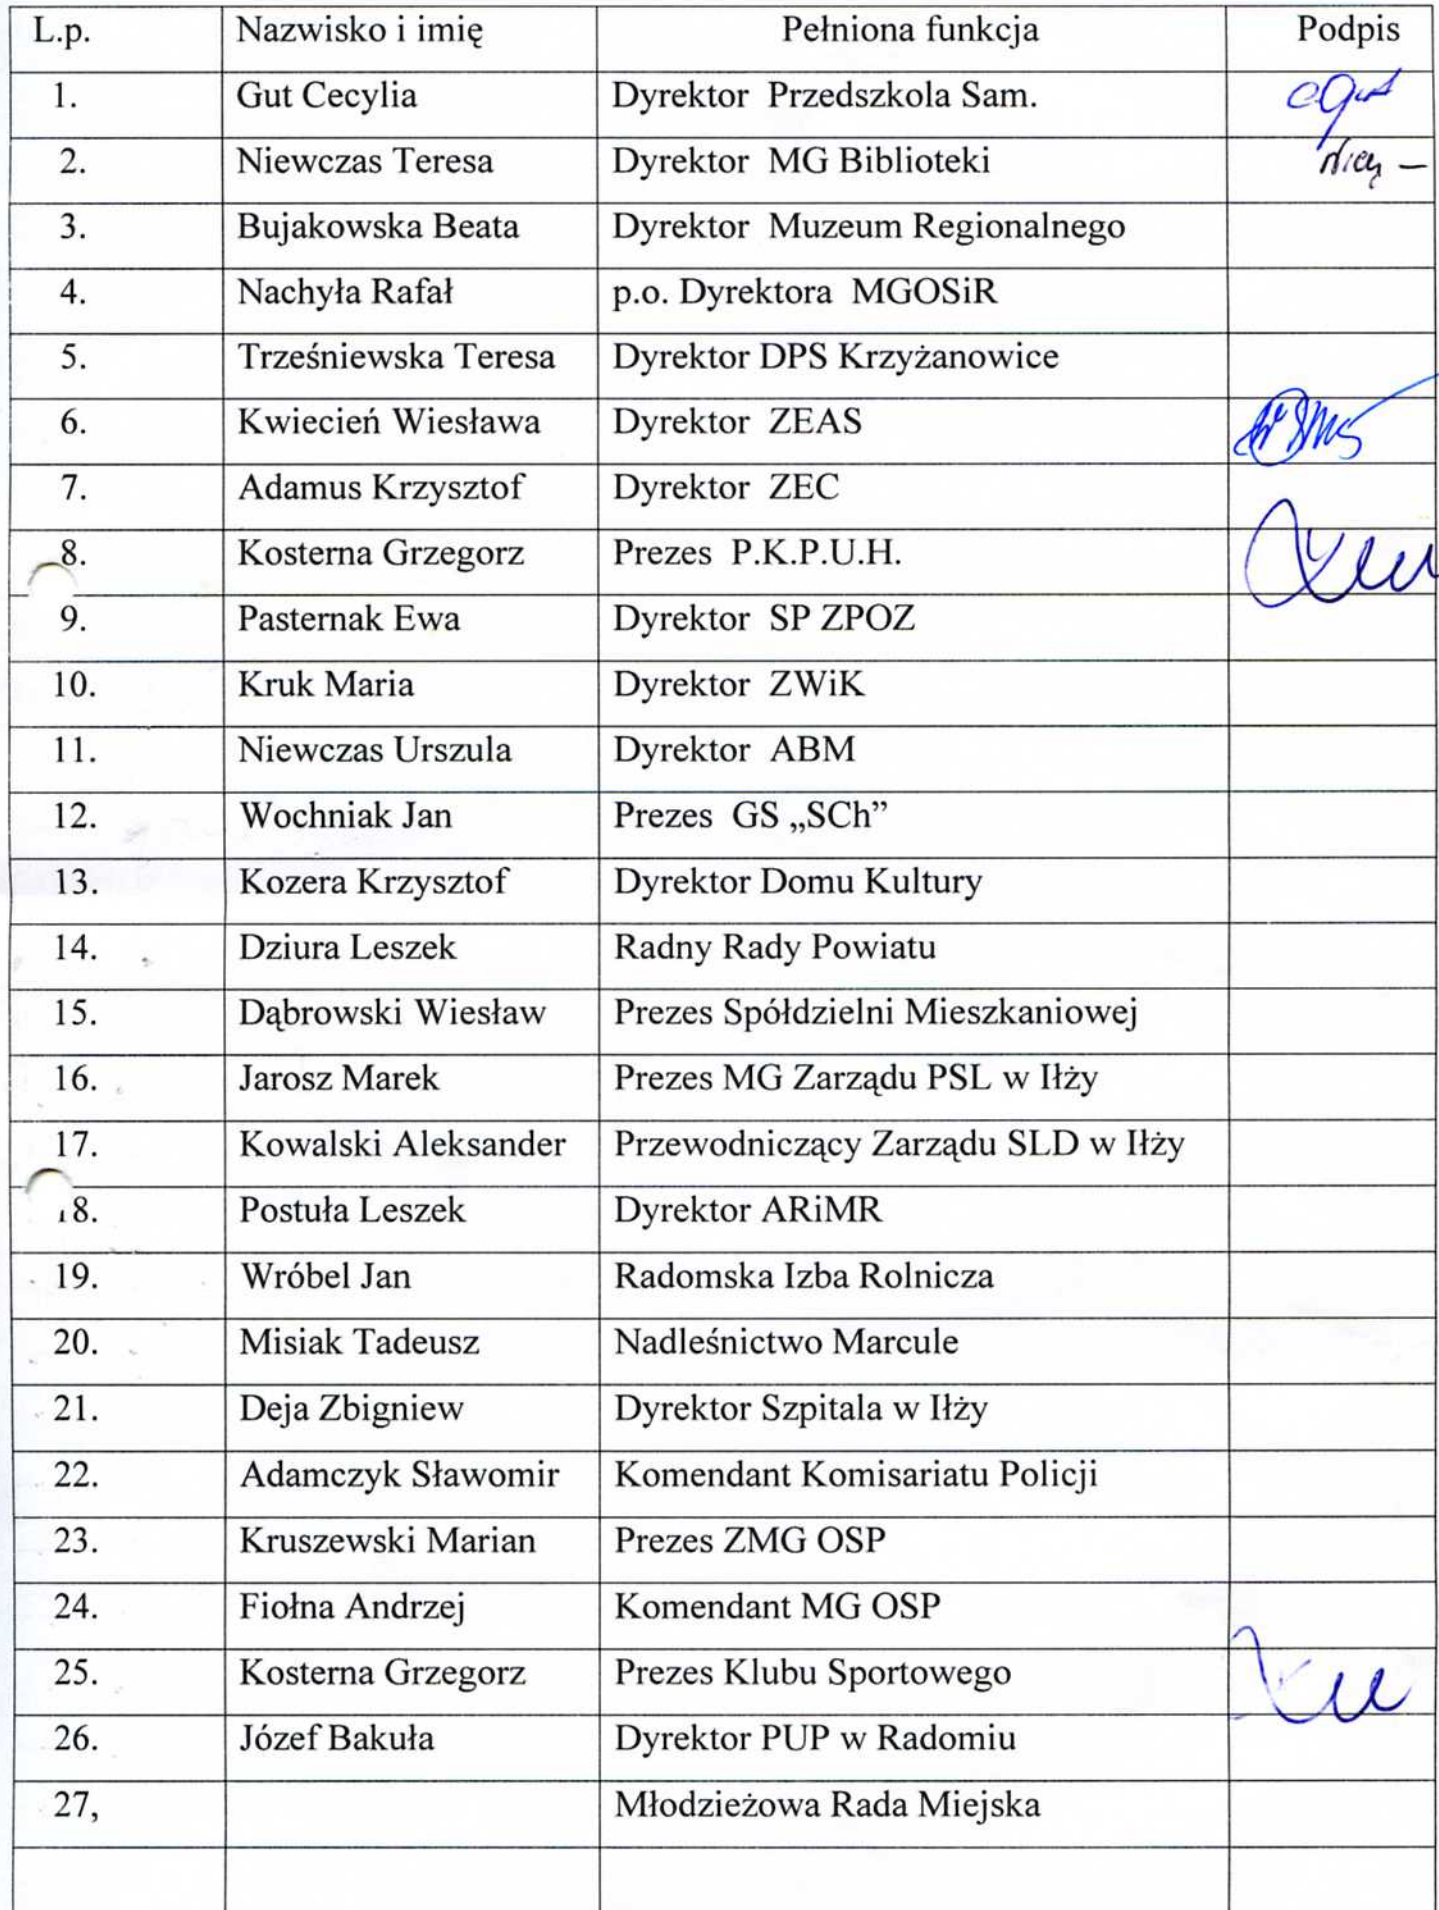 L.p. Nazwisko i imię Pełniona funkcja Podpis
1. Gut Cecylia Dyrektor Przedszkola Sam.
2. Niewczas Teresa Dyrektor MG Biblioteki
3. Bujakowska Beata Dyrektor Muzeum Regionalnego
4. Nachyła Rafał p.o. Dyrektora MGOSiR
5. Trześniewska Teresa Dyrektor DPS Krzyżanowice
6. Kwiecień Wiesława Dyrektor ZEAS
7. Adamus Krzysztof Dyrektor ZEC
8. Kosterna Grzegorz Prezes P.K.P.U.H.
9. Pasternak Ewa Dyrektor SP ZPOZ
10. Kruk Maria Dyrektor ZWiK
11. Niewczas Urszula Dyrektor ABM
12. Wochniak Jan Prezes GS „SCh”
13. Kozera Krzysztof Dyrektor Domu Kultury
14. Dziura Leszek Radny Rady Powiatu
15. Dąbrowski Wiesław Prezes Spółdzielni Mieszkaniowej
16. Jarosz Marek Prezes MG Zarządu PSL w Iłży
17. Kowalski Aleksander Przewodniczący Zarządu SLD w Iłży
18. Postuła Leszek Dyrektor ARiMR
19. Wróbel Jan Radomska Izba Rolnicza
20. Misiak Tadeusz Nadleśnictwo Marcule
21. Deja Zbigniew Dyrektor Szpitala w Iłży
22. Adamczyk Sławomir Komendant Komisariatu Policji
23. Kruszewski Marian Prezes ZMG OSP
24. Fiołna Andrzej Komendant MG OSP
25. Kosterna Grzegorz Prezes Klubu Sportowego
26. Józef Bakuła Dyrektor PUP w Radomiu
27, Młodzieżowa Rada Miejska